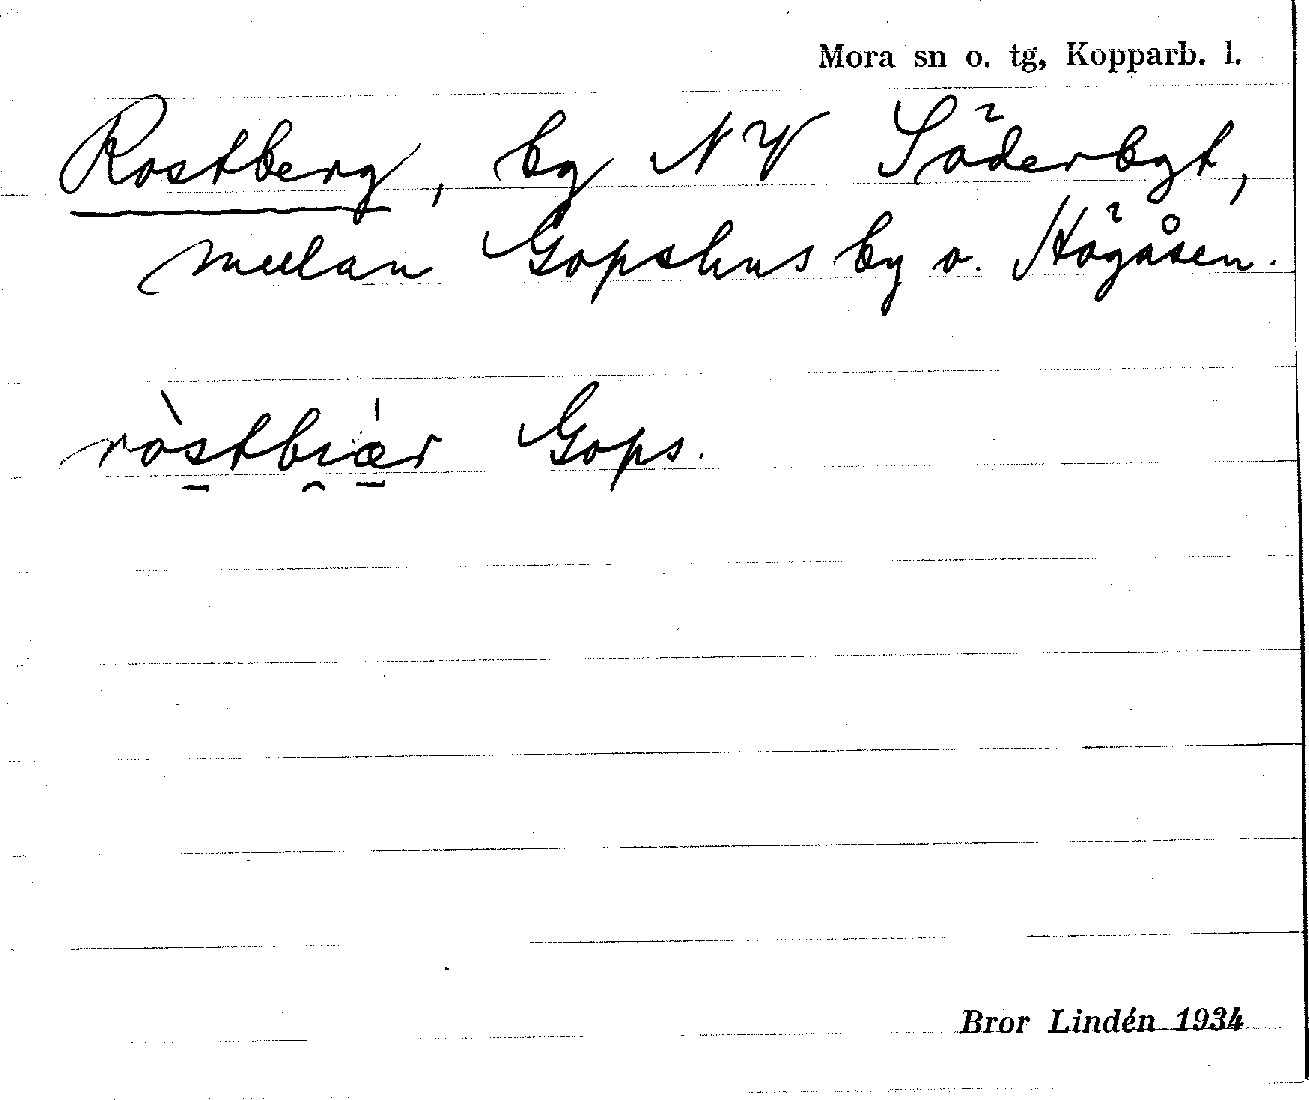 Mora sn o. tg, Kopparb. l.
Rostberg, by NV Söderbyt,
mellan Gopshus by o. Högåsen.
ròstbiær Gops.
Bror Lindén 1934